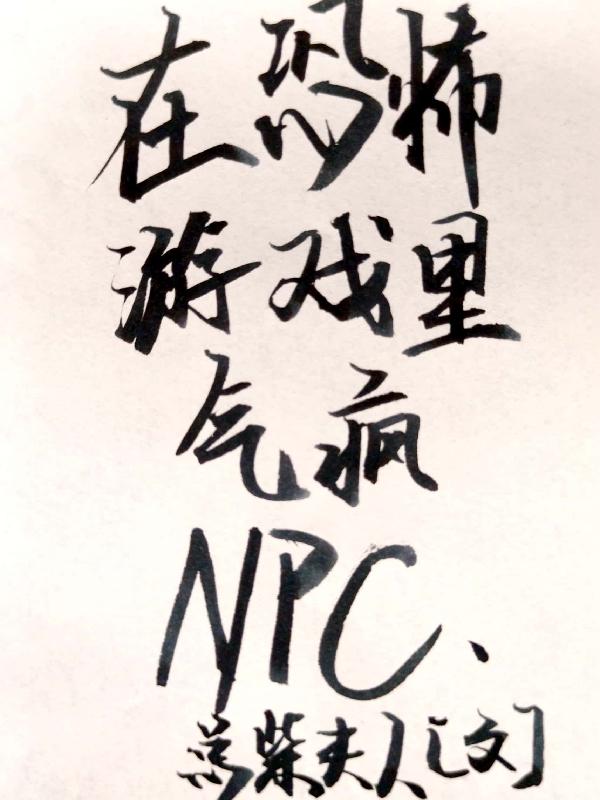 在恐怖
游戏里
气疯
NPC、
柴夫人[文]